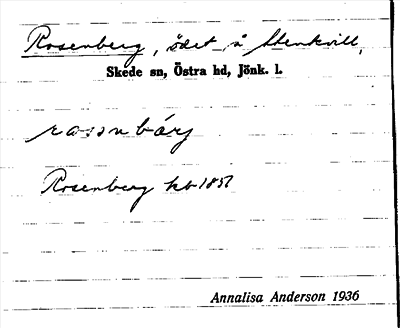 Rosenberg, ödet. å Stenkvill,
Skede sn, Östra hd, Jönk. l.
rosnbärj
Rosenberg hb 1857
Annalisa Anderson 1936